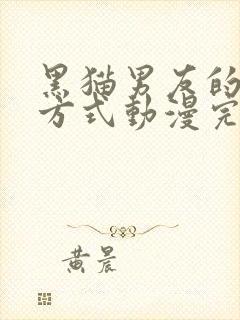 黑猫男友的
方式動漫完
黄晨